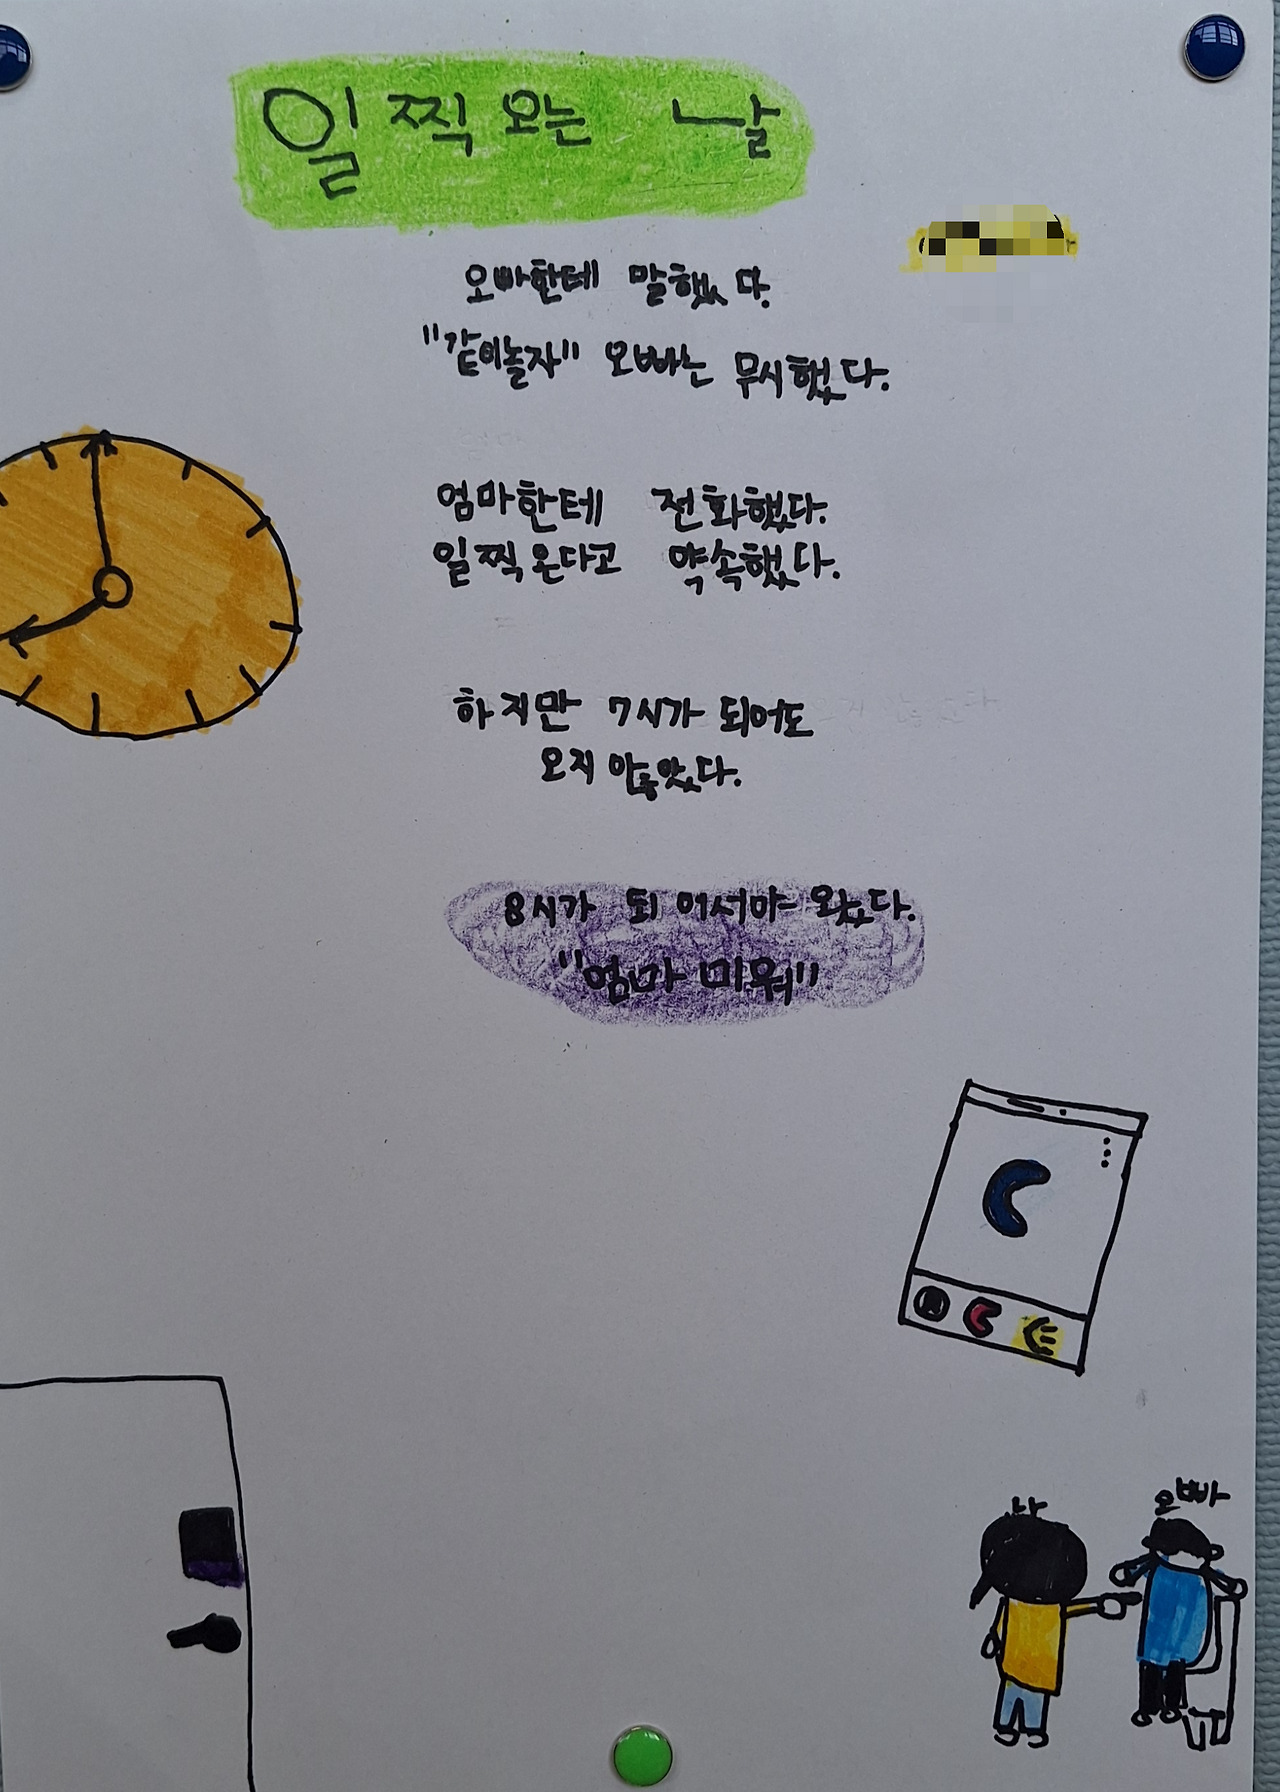 일찍 오는 날
오빠한테 말했다.
"같이놀자" 오빠는 무시했다.
엄마한테 전화했다.
일찍 온다고 약속했다.
하지만 7시가 되어도
오지 않았다.
8시가 되어서야 왔다.
"엄마 미워"
나
오빠